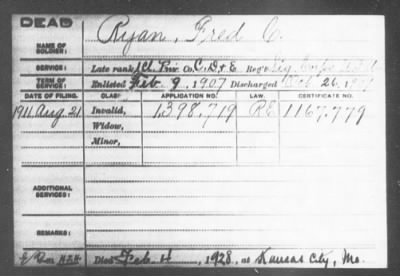 DEAD
NAME OF SOLDIER: Ryan, Fred C.
SERVICE: Late rank 1 Cl. Priv. Co. C, D & E Reg't Sig. Corps U.S.A.
TERM OF SERVICE: Enlisted Feb. 9, 1907 Discharged 26,
DATE OF FILING. CLASS. APPLICATION NO. LAW. CERTIFICATE NO.
1911 Aug. 21 Invalid, 1,398,719 RE 1167,779
Widow,
Minor,
ADDITIONAL SERVICES:
REMARKS:
Died Feb. 4, 1928, at Kansas City, Mo.